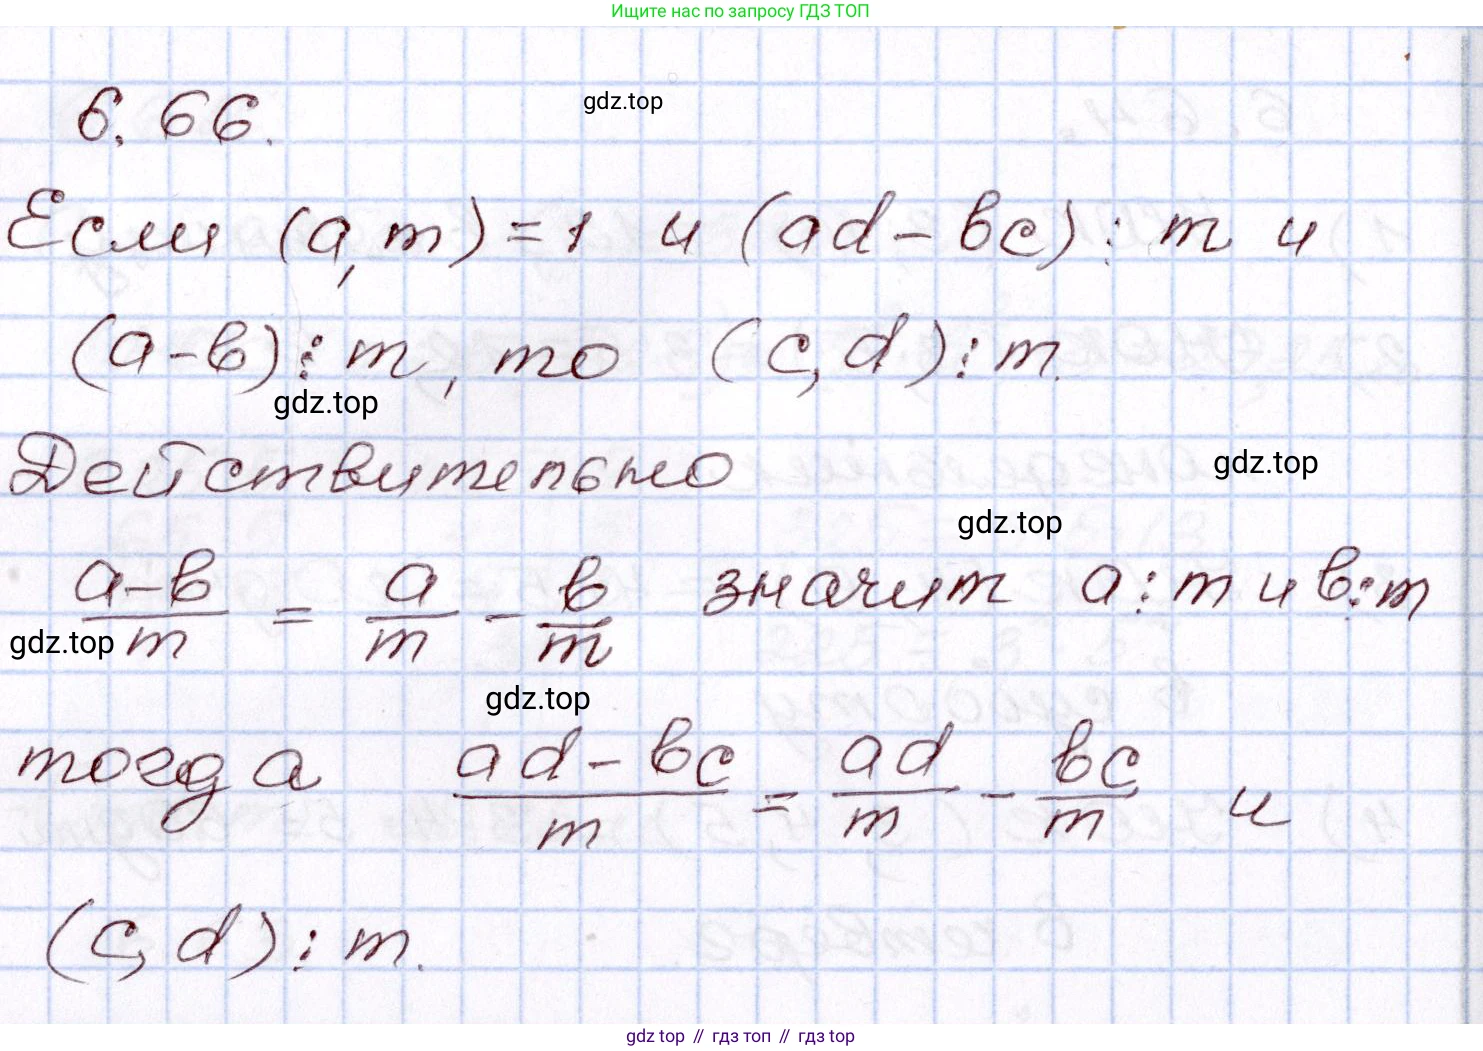 Ищите нас по запросу ГДЗ ТОП
6.66.
gdz.top
Если (a,m)=1 и (ad-bc)⋮m и
(a-b)⋮m, то (c,d)⋮m.
gdz.top
Действительно
gdz.top
gdz.top
(a-b)/m = a/m - b/m значит a⋮m и b⋮m
gdz.top
gdz.top
тогда (ad-bc)/m = ad/m - bc/m и
(c,d)⋮m.
gdz top // гдз топ // гдз top